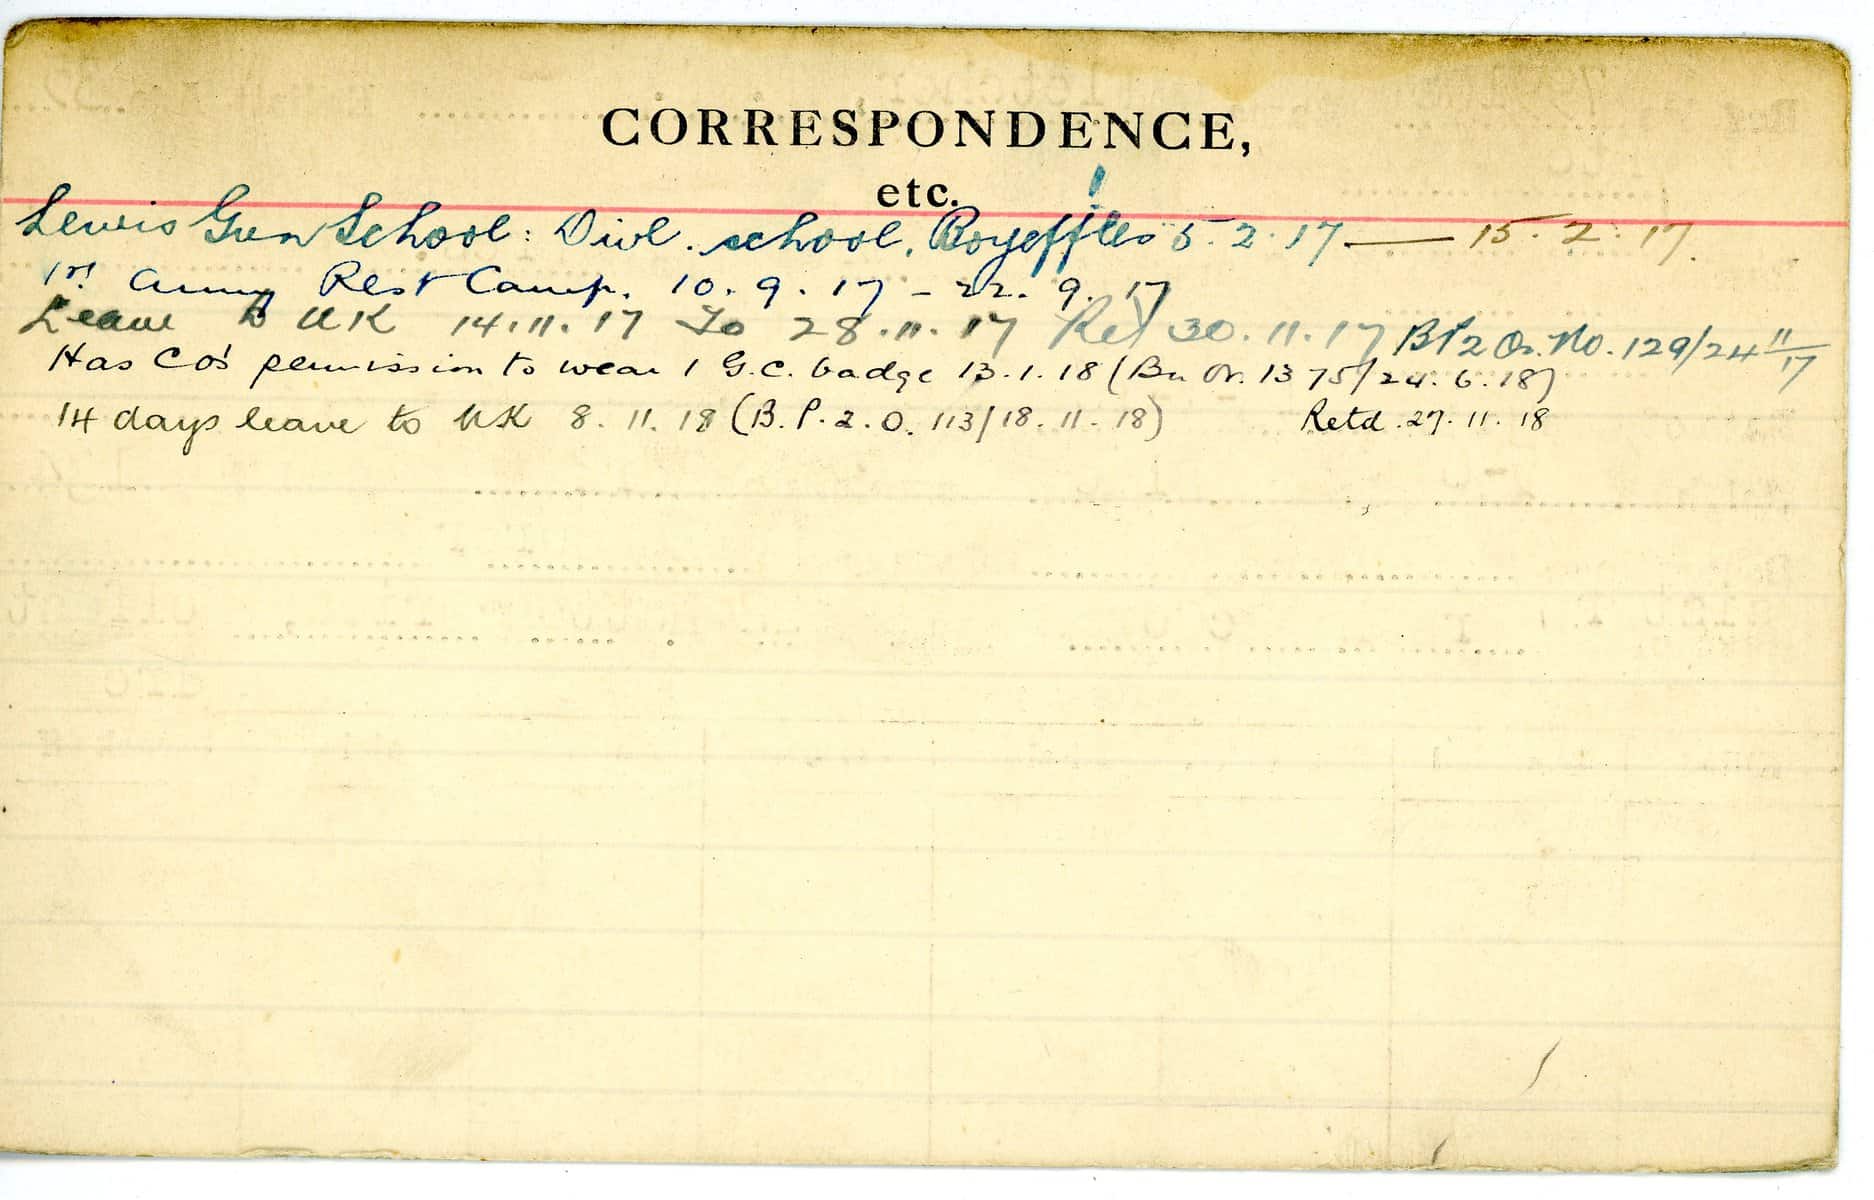 CORRESPONDENCE,
etc.
Lewis Gun School: Divl. school, Boyeffles 5.2.17 — 15.2.17.
1st Army Rest Camp. 10.9.17 – 22.9.17
Leave to UK 14.11.17 To 28.11.17 Ret 30.11.17 BP2 Or. No. 129/24 11/17
Has CO's permission to wear 1 G.C. badge 13.1.18 (Bn Or. 1375/24.6.18)
14 days leave to UK 8.11.18 (B.P.2.O. 113/18.11.18) Retd. 27.11.18